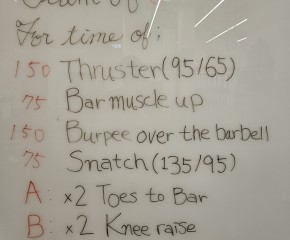 For time of:
150 Thruster (95/65)
75 Bar muscle up
150 Burpee over the barbell
75 Snatch (135/95)
A: x2 Toes to Bar
B: x2 Knee raise